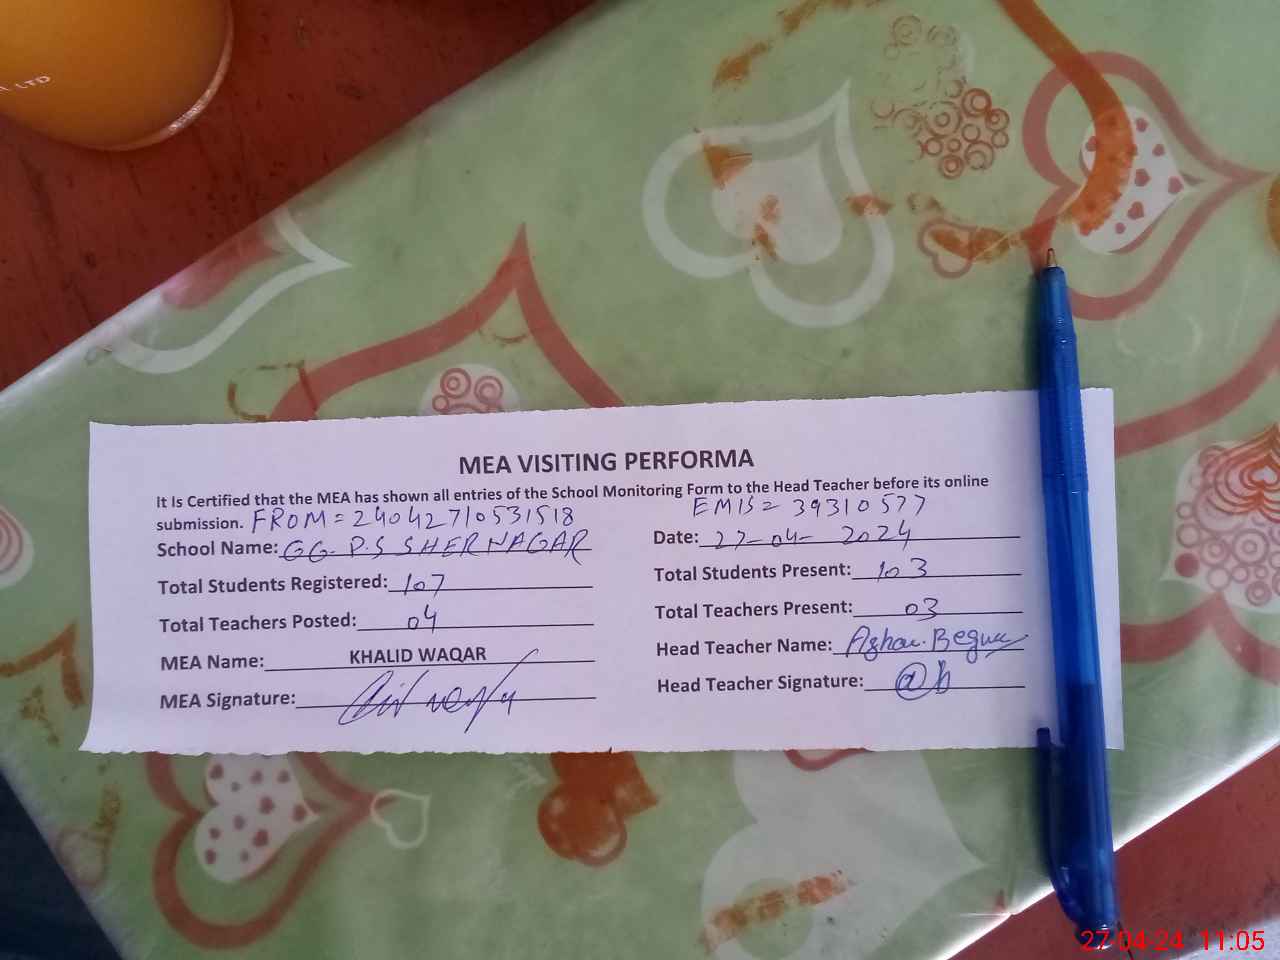 LTD
MEA VISITING PERFORMA
It Is Certified that the MEA has shown all entries of the School Monitoring Form to the Head Teacher before its online
submission. FROM = 24042710531518 EMIS = 39310577
School Name: GG. P.S SHER NAGAR Date: 27-04-2024
Total Students Registered: 107 Total Students Present: 103
Total Teachers Posted: 04 Total Teachers Present: 03
MEA Name: KHALID WAQAR Head Teacher Name: Azhar Begum
MEA Signature: Head Teacher Signature:
27-04-24 11:05